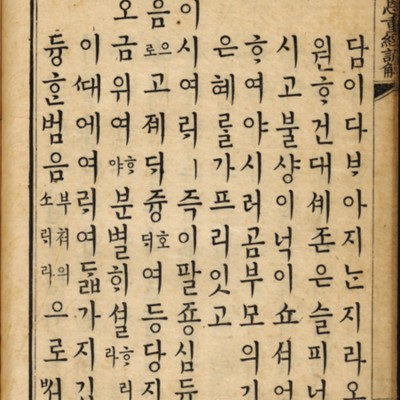 重經諺解
담이다ᄇᆞ아지ᄂᆞᆫ지라오
원ᄒᆞ건대셰존은슬피너
시고불샹이넉이쇼셔어
ᄒᆞ여야시러곰부모의기
은혜ᄅᆞᆯ가프리잇고
이시여ᄅᆡㅣ즉이팔죵심듀
음으로고졔ᄃᆡ즁호ᄃᆡ여등당지
오금위여ᄒᆞ야분별ᄒᆡ셜ᄒᆞ리라
이ᄯᅢ에여ᄅᆡ여ᄃᆞᆲ가지깁
듕ᄒᆞᆫ범음부쳐의소ᄅᆡ라으로